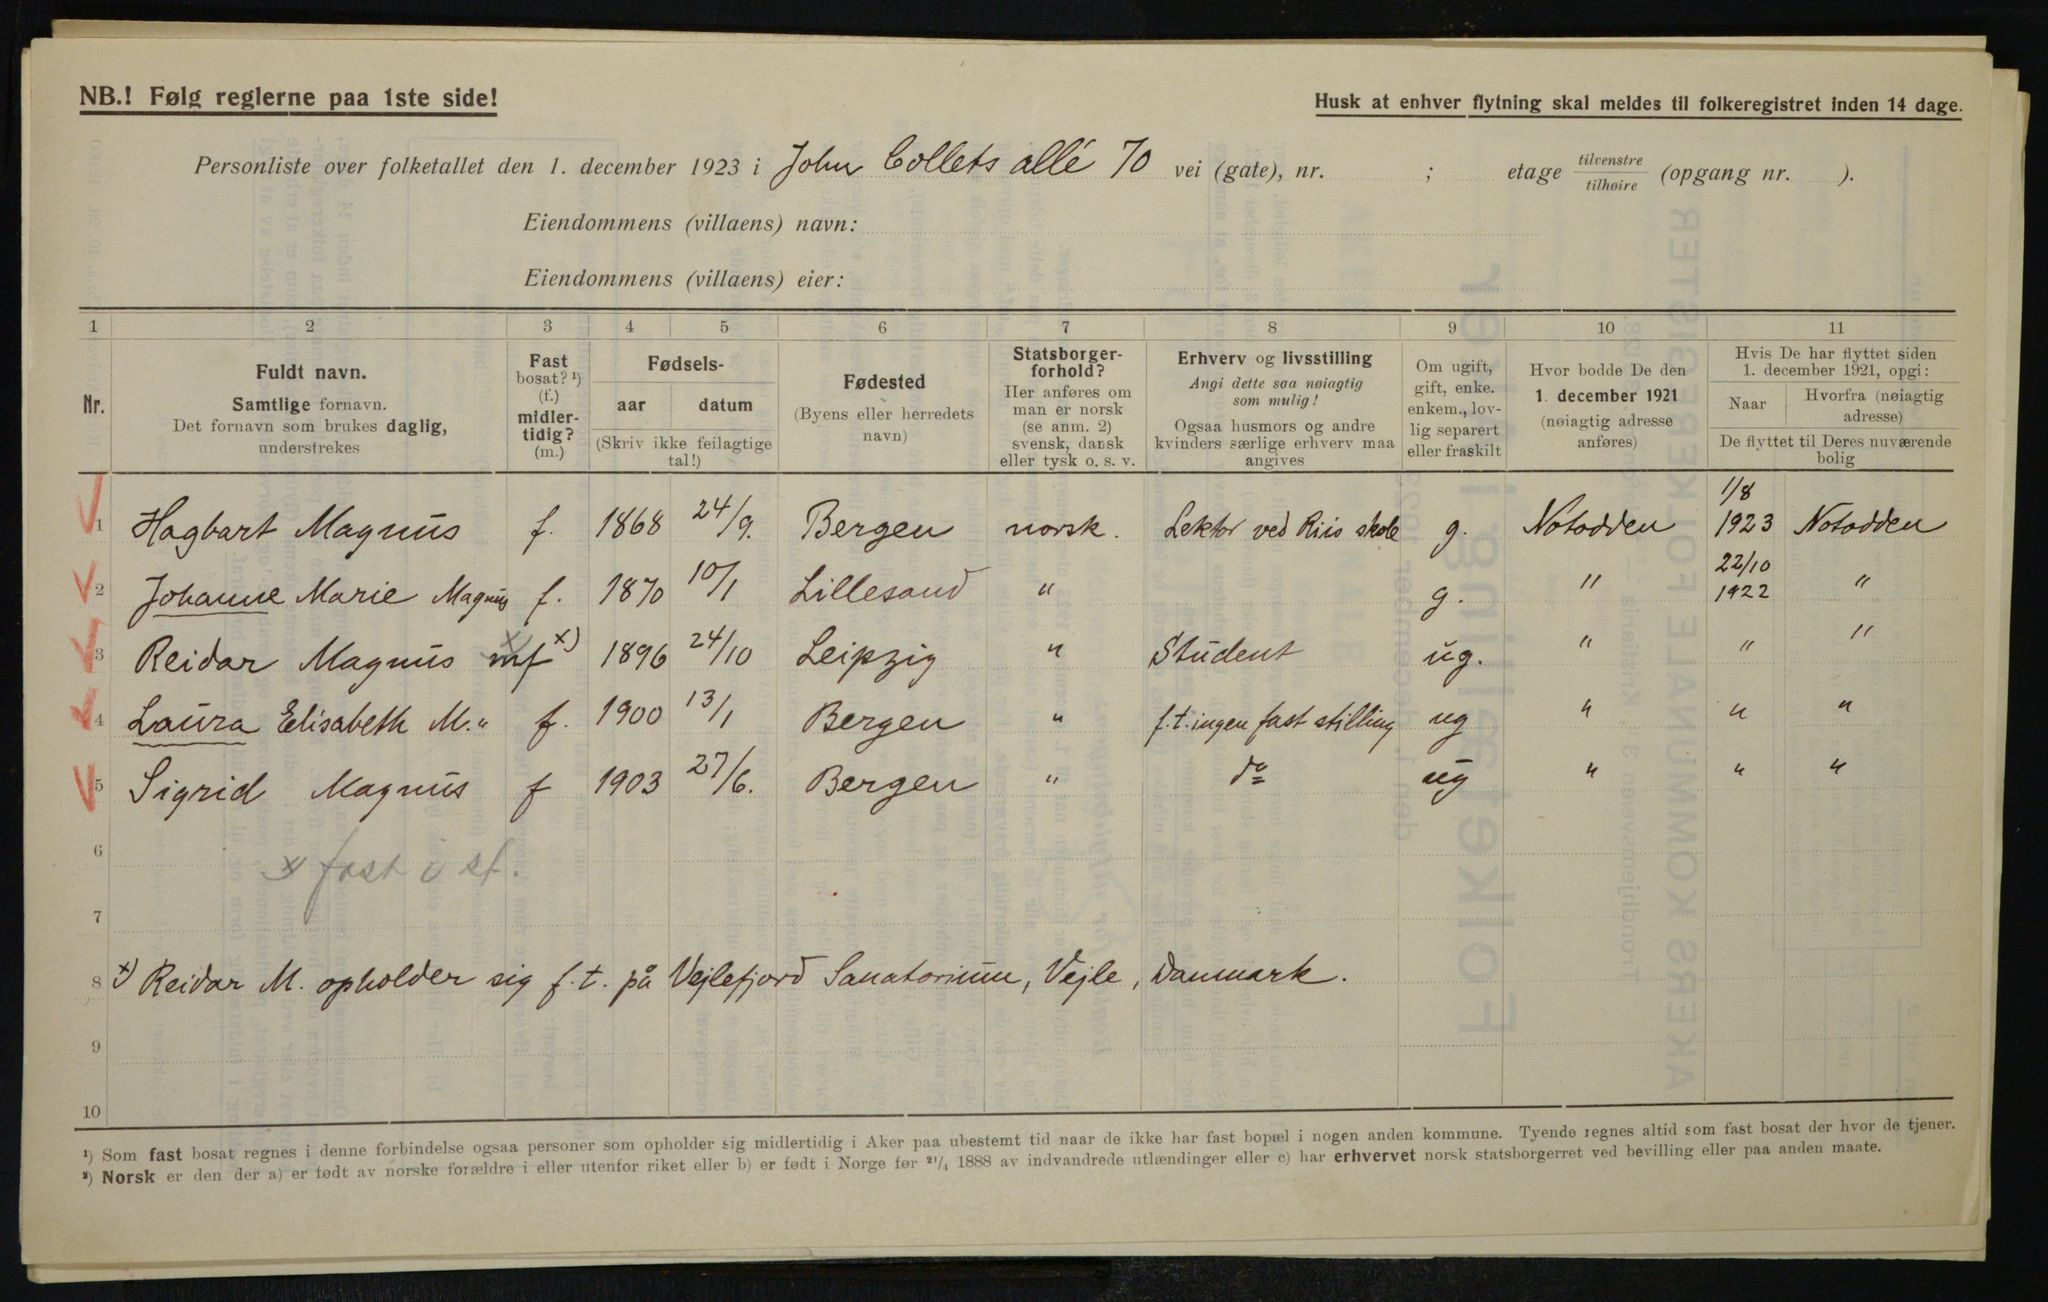 NB.! Følg reglerne paa 1ste side!
Husk at enhver flytning skal meldes til folkeregistret inden 14 dage.
Personliste over folketallet den 1. december 1923 i John Collets allé 70 vei (gate), nr. ; etage tilvenstre/tilhøire (opgang nr. ).
Eiendommens (villaens) navn:
Eiendommens (villaens) eier:
1 2 3 4 5 6 7 8 9 10 11
Nr.
Fuldt navn.
Samtlige fornavn.
Det fornavn som brukes daglig,
understrekes
Fast
bosat? ¹)
(f.)
midler-
tidig?
(m.)
Fødsels-
aar datum
(Skriv ikke feilagtige
tal!)
Fødested
(Byens eller herredets
navn)
Statsborger-
forhold?
Her anføres om
man er norsk
(se anm. 2)
svensk, dansk
eller tysk o. s. v.
Erhverv og livsstilling
Angi dette saa nøiagtig
som mulig!
Ogsaa husmors og andre
kvinders særlige erhverv maa
angives
Om ugift,
gift, enke.
enkem., lov-
lig separert
eller fraskilt
Hvor bodde De den
1. december 1921
(nøiagtig adresse
anføres)
Hvis De har flyttet siden
1. december 1921, opgi:
Naar
Hvorfra (nøiagtig
adresse)
De flyttet til Deres nuværende
bolig
1 Hagbart Magnus f. 1868 24/9. Bergen norsk. Lektor ved Riis skole g. Notodden 1/8 1923 Notodden
2 Johanne Marie Magnus f. 1870 10/1 Lillesand " g. " 22/10 1922 "
3 Reidar Magnus mf x) 1896 24/10 Leipzig " Student ug. " " "
4 Laura Elisabeth M. " f. 1900 13/1 Bergen " f.t. ingen fast stilling ug " " "
5 Sigrid Magnus f 1903 27/6. Bergen " do ug " " "
6
x) fast i st.
7
8 x) Reidar M. opholder sig f.t. på Vejlefjord Sanatorium, Vejle, Danmark.
9
10
¹) Som fast bosat regnes i denne forbindelse ogsaa personer som opholder sig midlertidig i Aker paa ubestemt tid naar de ikke har fast bopæl i nogen anden kommune. Tyende regnes altid som fast bosat der hvor de tjener.
²) Norsk er den der a) er født av norske forældre i eller utenfor riket eller b) er født i Norge før ²¹/₄ 1888 av indvandrede utlændinger eller c) har erhvervet norsk statsborgerret ved bevilling eller paa anden maate.